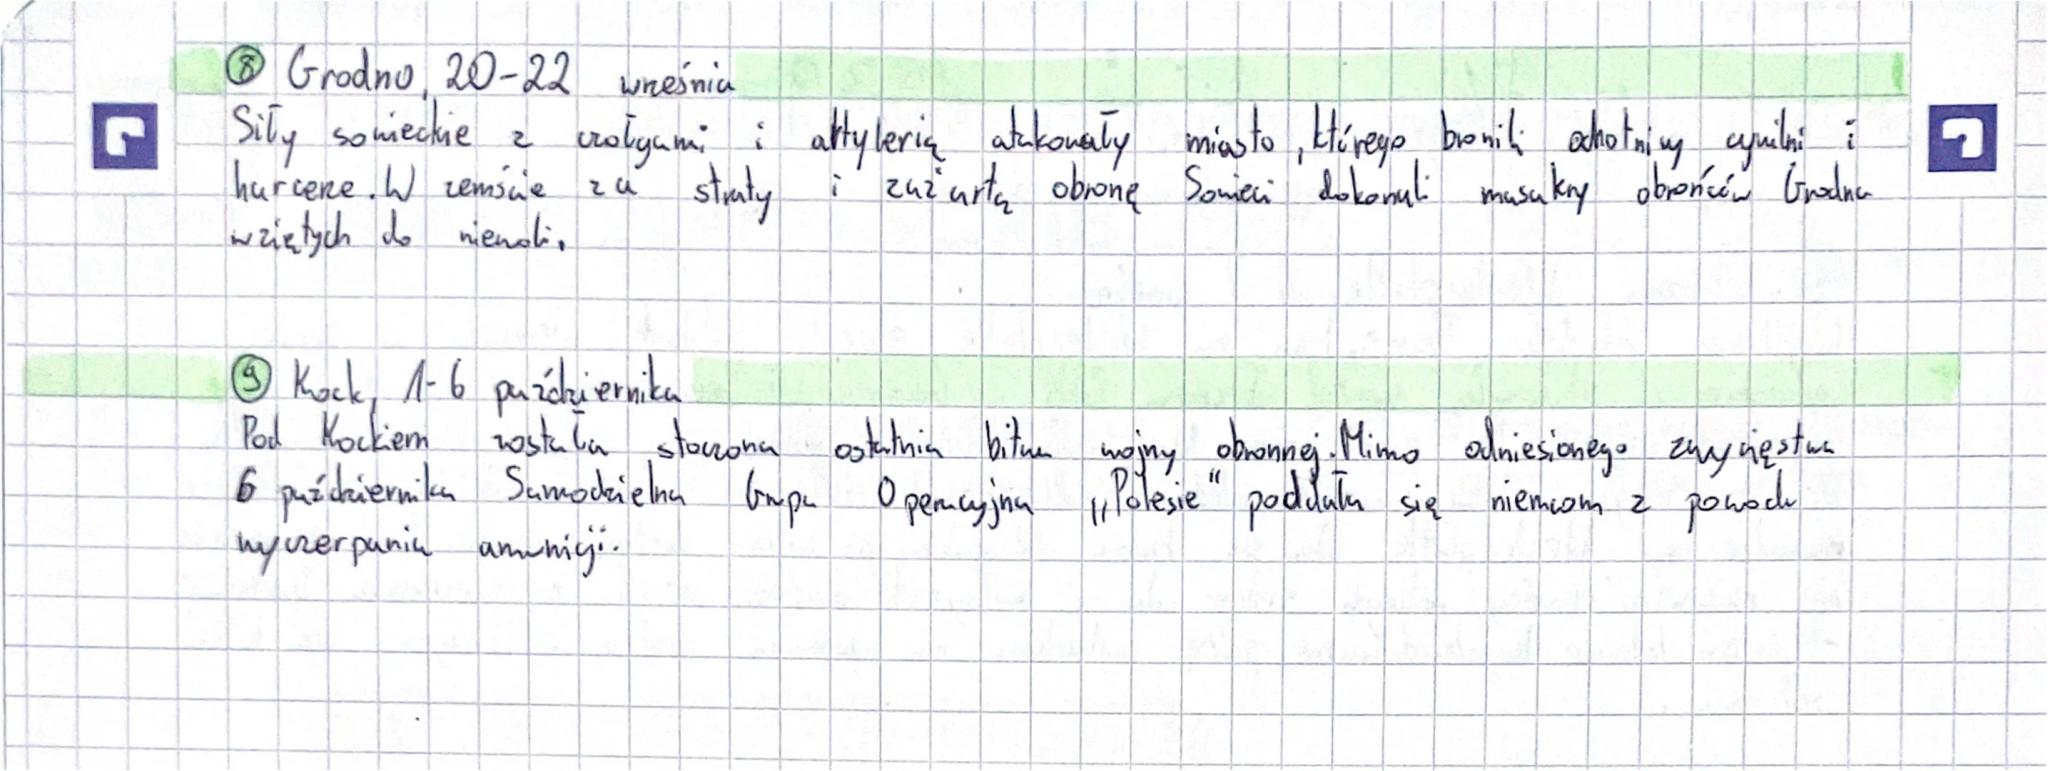 ⑧ Grodno, 20-22 września
Siły sowieckie z czołgami i artylerią atakowały miasto, którego bronili ochotnicy cywilni i
harcerze. W zemście za straty i zażartą obronę Sowieci dokonali masakry obrońców Grodna
wziętych do niewoli.
⑨ Kock, 1-6 października
Pod Kockiem została stoczona ostatnia bitwa wojny obronnej. Mimo odniesionego zwycięstwa
6 października Samodzielna Grupa Operacyjna „Polesie“ poddała się niemcom z powodu
wyczerpania amunicji.